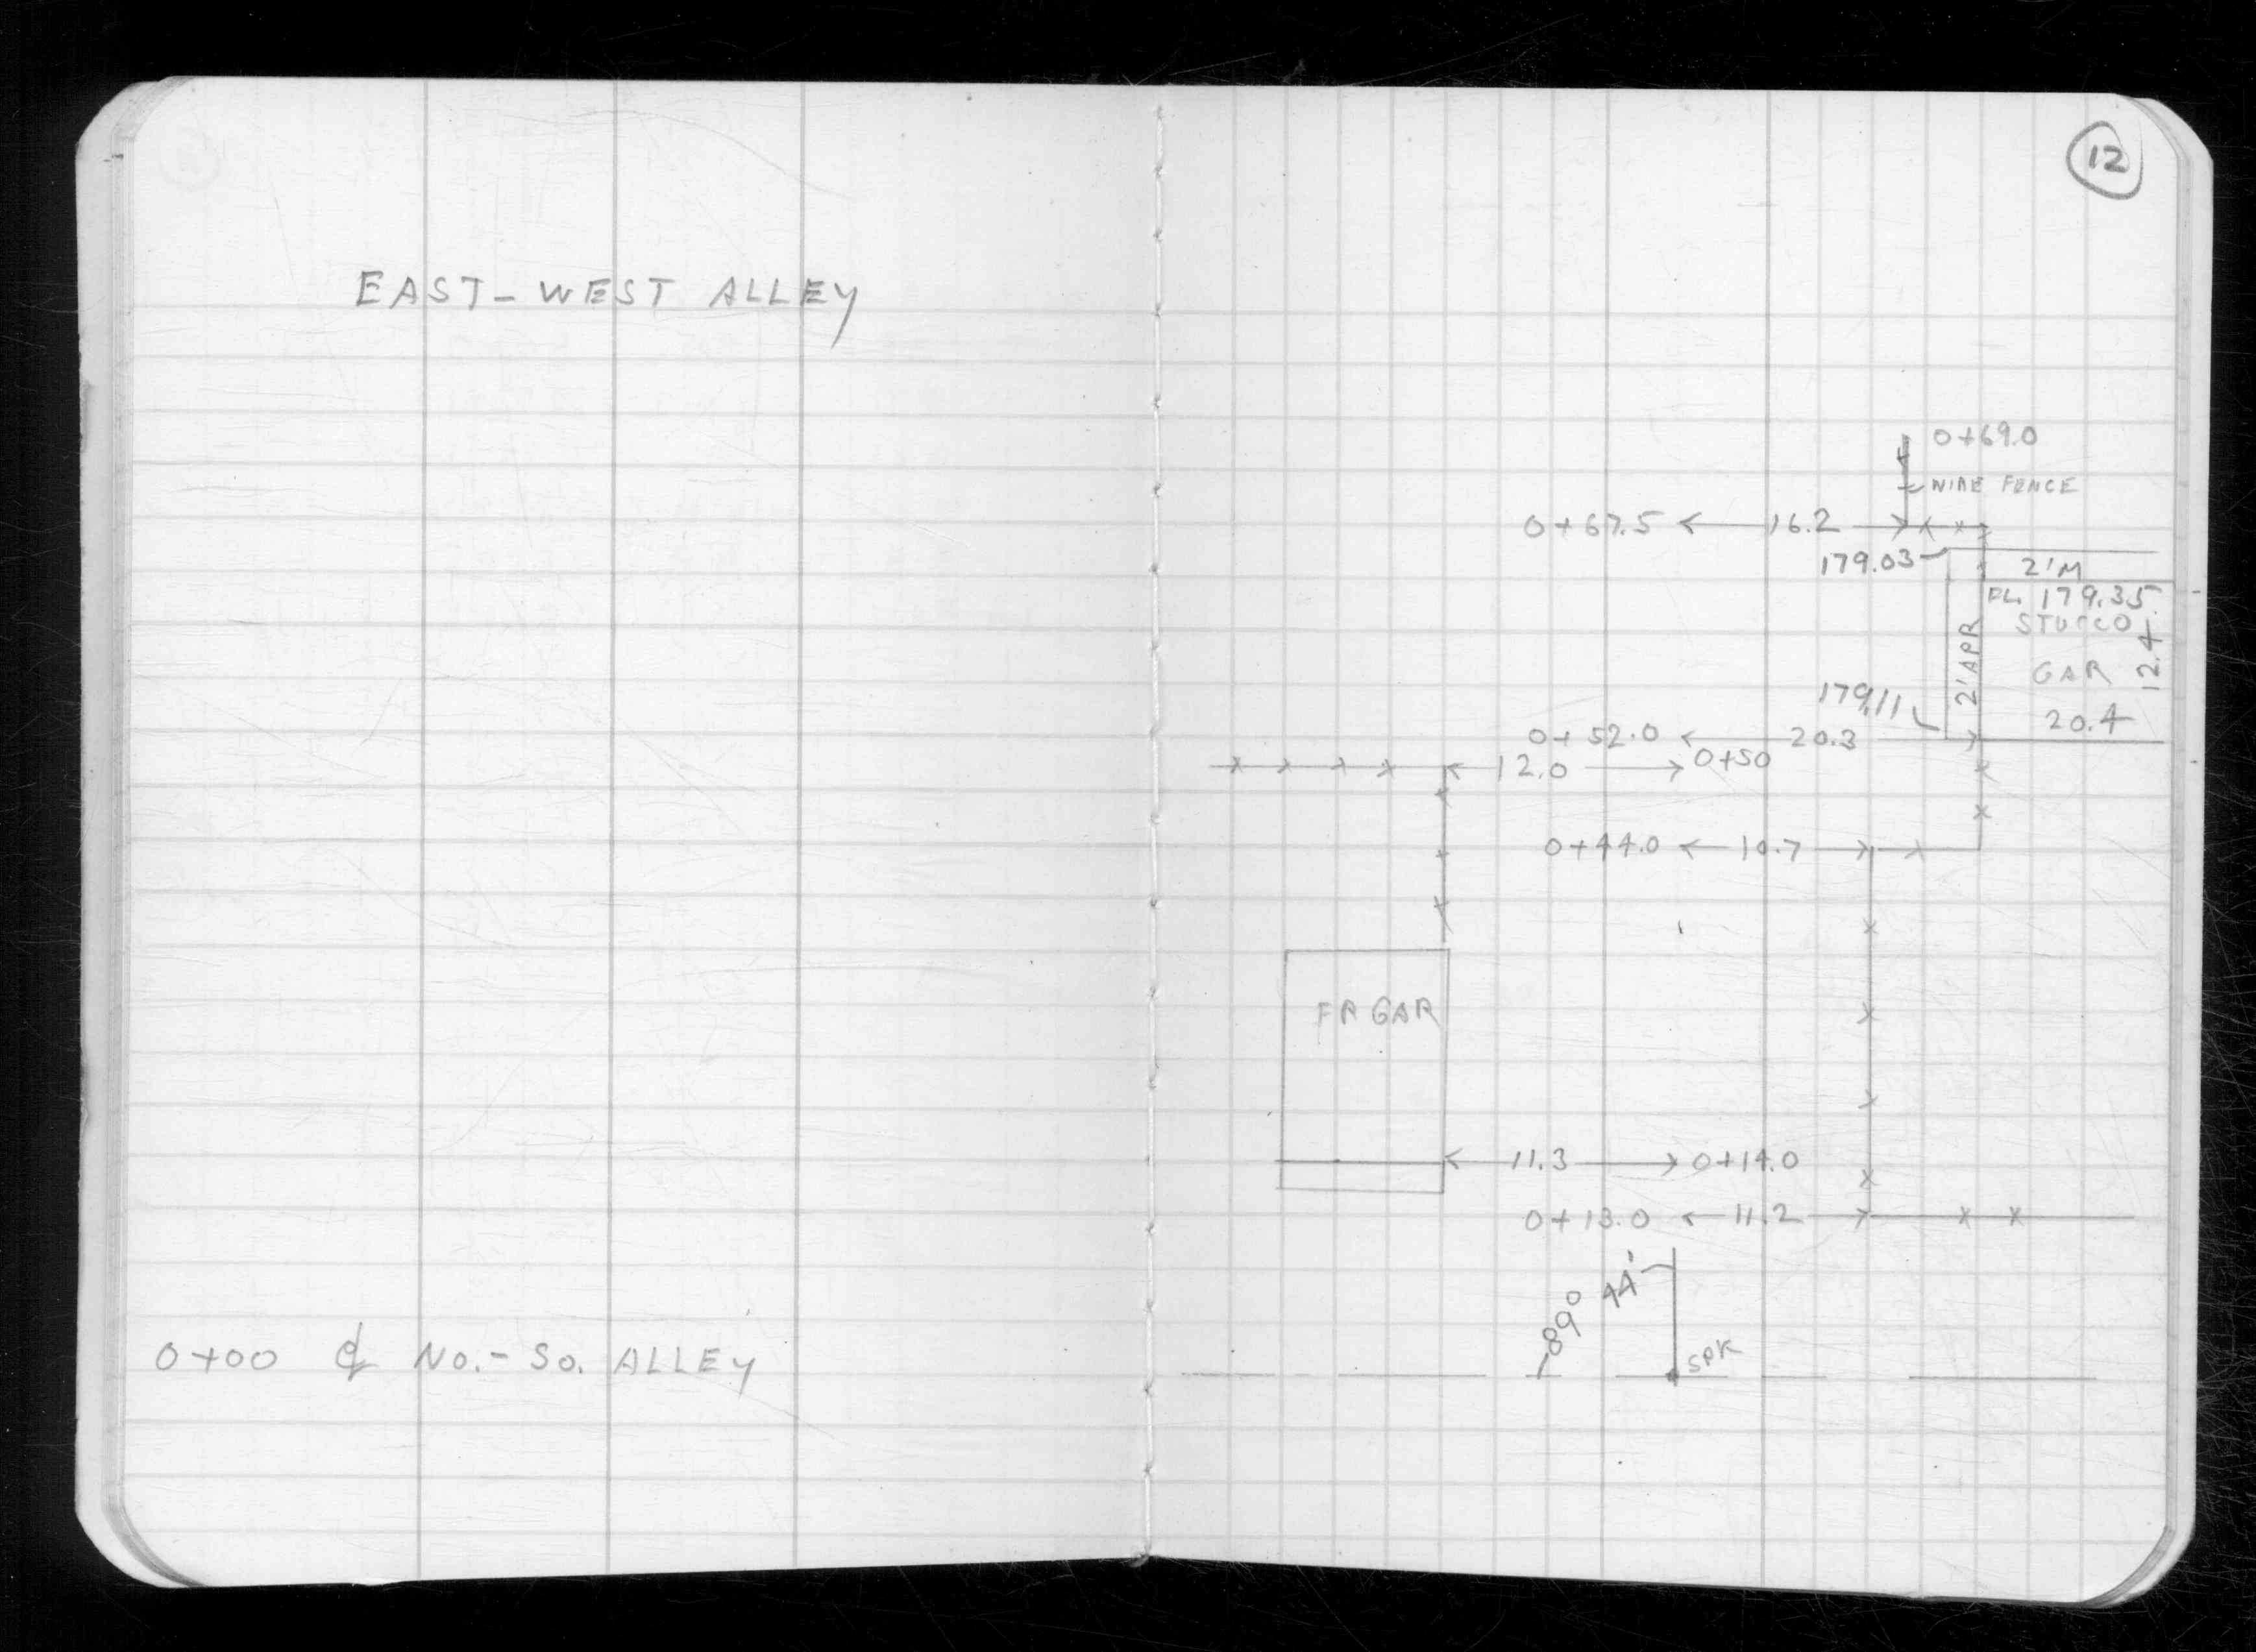 12
EAST-WEST ALLEY
0+69.0
WIRE FENCE
0+67.5 16.2
179.03
2'M
FL. 179.35
STUCCO
GAR
12.4
20.4
2'APR
179.11
0+52.0 20.3
12.0 0+50
0+44.0 10.7
FR GAR
11.3 0+14.0
0+13.0 11.2
89° 44'
SPK
0+00 ₵ No.-So. ALLEY